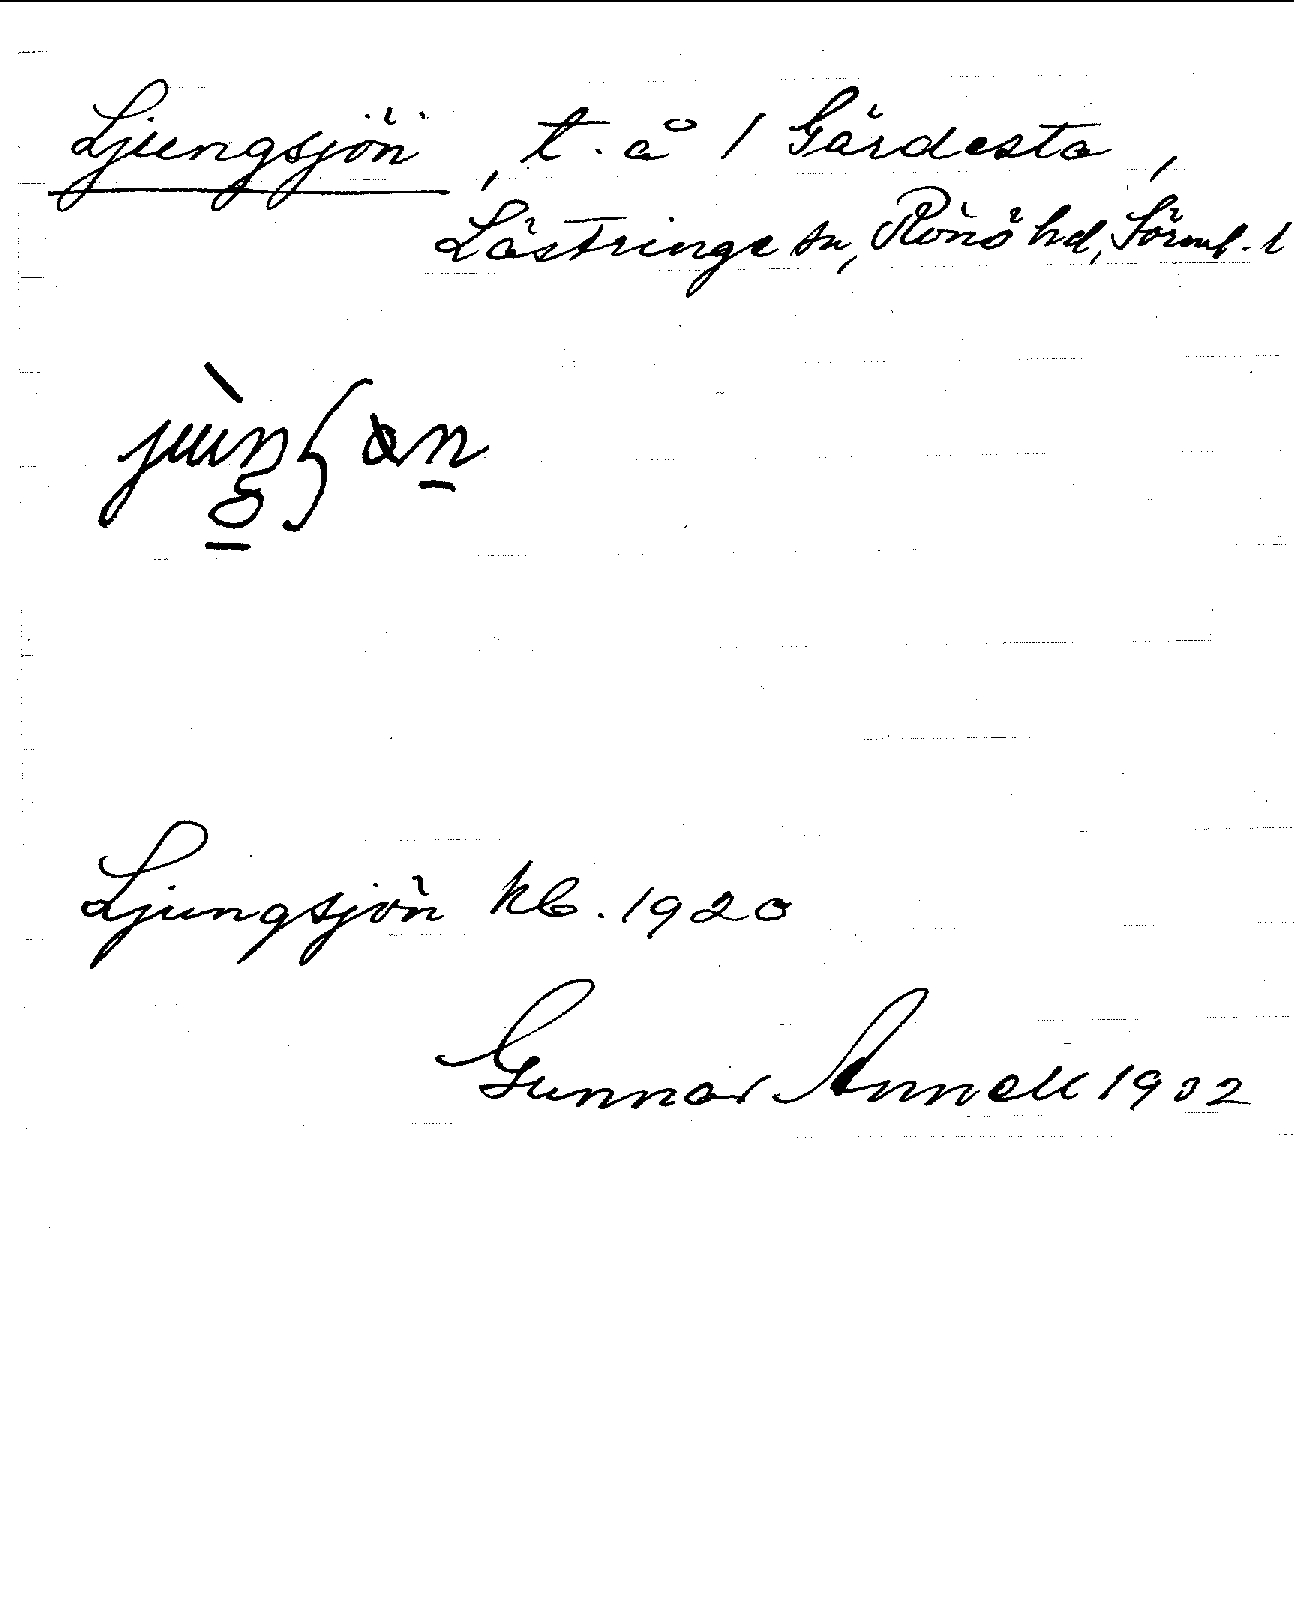 Ljungsjön, t. å 1 Gärdesta,
Lästringe sn, Rönö hd, Sörml. l
Ljungsjön kb. 1920
Gunnar Annell 1932